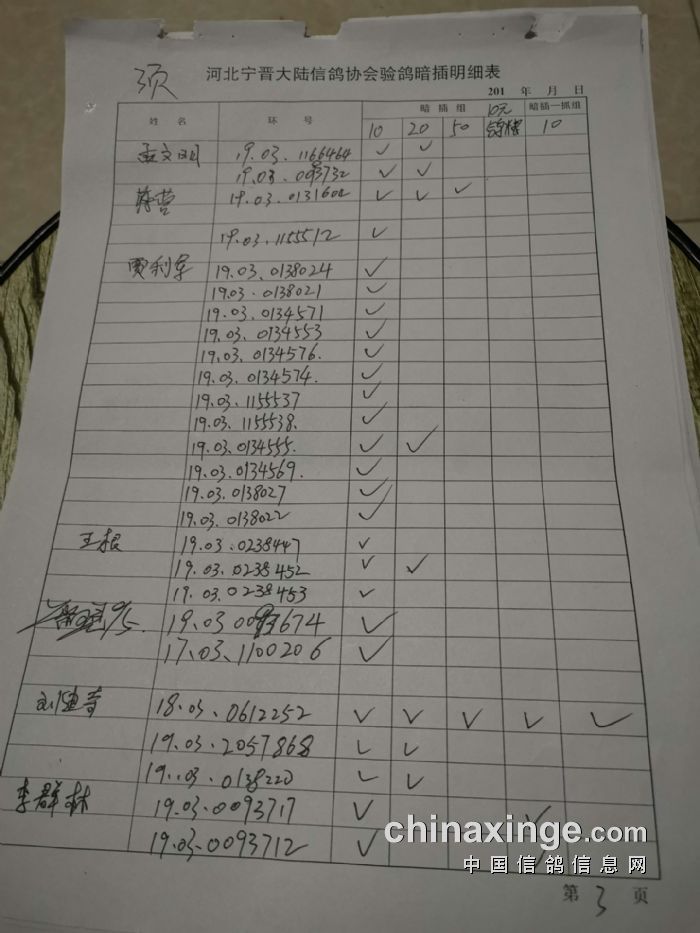 须
河北宁晋大陆信鸽协会验鸽暗插明细表
201 年 月 日
姓 名 环 号 暗 插 组 10元 暗插一抓组
10 20 50 鸽牌 10
孟文 19.03.1166464 ✓ ✓
19.03. ✓ ✓
19.03.0131604 ✓ ✓ ✓
19.03.1155512 ✓
贾利军 19.03.0138024 ✓
19.03.0138021 ✓
19.03.0134571 ✓
19.03.0134553 ✓
19.03.0134576. ✓
19.03.0134574. ✓
19.03.1155537 ✓
19.03.1155538. ✓
19.03.0134555. ✓ ✓
19.03.0134569. ✓
19.03.0138027 ✓
19.03.0138022 ✓
王根 19.03.0238447 ✓
19.03.0238452 ✓ ✓
19.03.0238453 ✓
19.03 ✓
17.03.1100206 ✓
刘建奇 18.03.0612252 ✓ ✓ ✓ ✓ ✓
19.03.2057868 ✓ ✓
19.03.0138220 ✓ ✓
李群林 19.03.0093717 ✓ ✓
19.03.0093712 ✓ ✓
chinaxinge.com
中国信鸽信息网
第 3 页